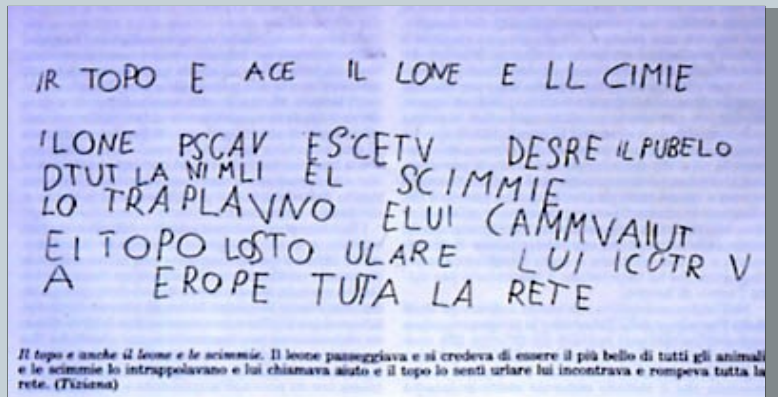 IR TOPO E ACE IL LONE E LL CIMIE
ILONE PSCAV ESCETV DESRE IL PUBELO
DTUT LA NIMLI EL SCIMMIE
LO TRAPLAVNO ELUI CAMMVAIUT
EI TOPO LOSTO ULARE LUI ICOTR V
A EROPE TUTA LA RETE
Il topo e anche il leone e le scimmie. Il leone passeggiava e si credeva di essere il più bello di tutti gli animali
e le scimmie lo intrappolavano e lui chiamava aiuto e il topo lo sentì urlare lui incontrava e rompeva tutta la
rete. (Tiziana)